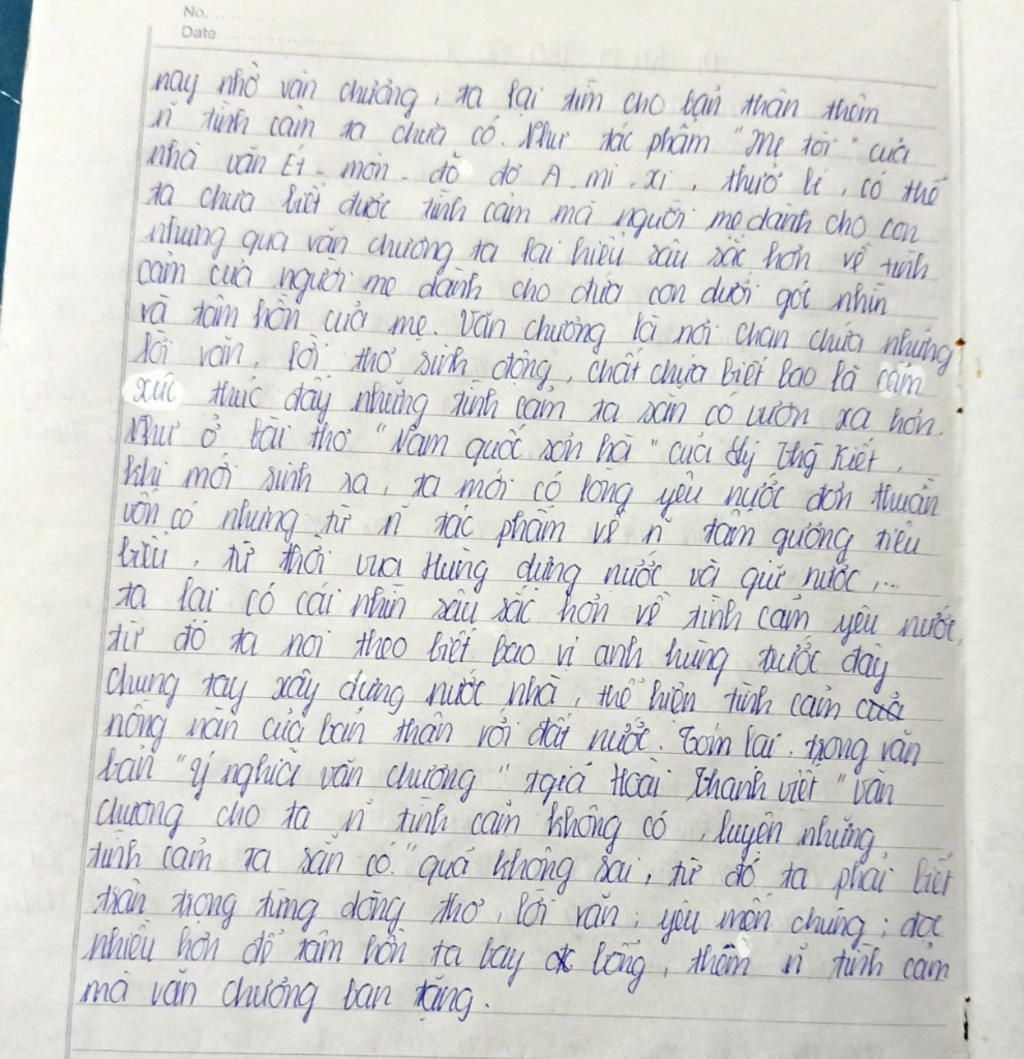 No.
Date
nay nhờ văn chương, ta lại tìm cho bản thân thêm
n~ tình cảm ta chưa có. Như tác phẩm "Mẹ tôi" của
nhà văn Ét - môn - đô đơ A. mi. xi, thuở bé, có thể
ta chưa biết được tình cảm mà người mẹ dành cho con
nhưng qua văn chương ta lại hiểu sâu sắc hơn về tình
cảm của người mẹ dành cho đứa con dưới gót nhìn
và tâm hồn của mẹ. Văn chương là nơi chan chứa những
lời văn, lời thơ sinh động, chất chứa biết bao là cảm
xúc thúc đẩy những tình cảm ta sẵn có vươn xa hơn.
Như ở bài thơ "Nam quốc sơn hà" của Lý Thg Kiệt,
khi mới sinh ra, ta mới có lòng yêu nước đơn thuần
vốn có nhưng từ n~ tác phẩm về n~ tấm gương tiêu
biểu, từ thời vua Hùng dựng nước và giữ nước,...
ta lại có cái nhìn sâu sắc hơn về tình cảm yêu nước,
từ đó ta noi theo biết bao vị anh hùng trước đây
chung tay xây dựng nước nhà, thể hiện tình cảm
nồng nàn của bản thân với đất nước. Tóm lại, trong văn
bản "Ý nghĩa văn chương" tgiả Hoài Thanh viết "Văn
chương cho ta n~ tình cảm không có, luyện những
tình cảm ta sẵn có." quả không sai, từ đó ta phải biết
trân trọng từng dòng thơ, lời văn; yêu mến chúng; đọc
nhiều hơn để tâm hồn ta bay bổng, thêm n~ tình cảm
mà văn chương ban tặng.